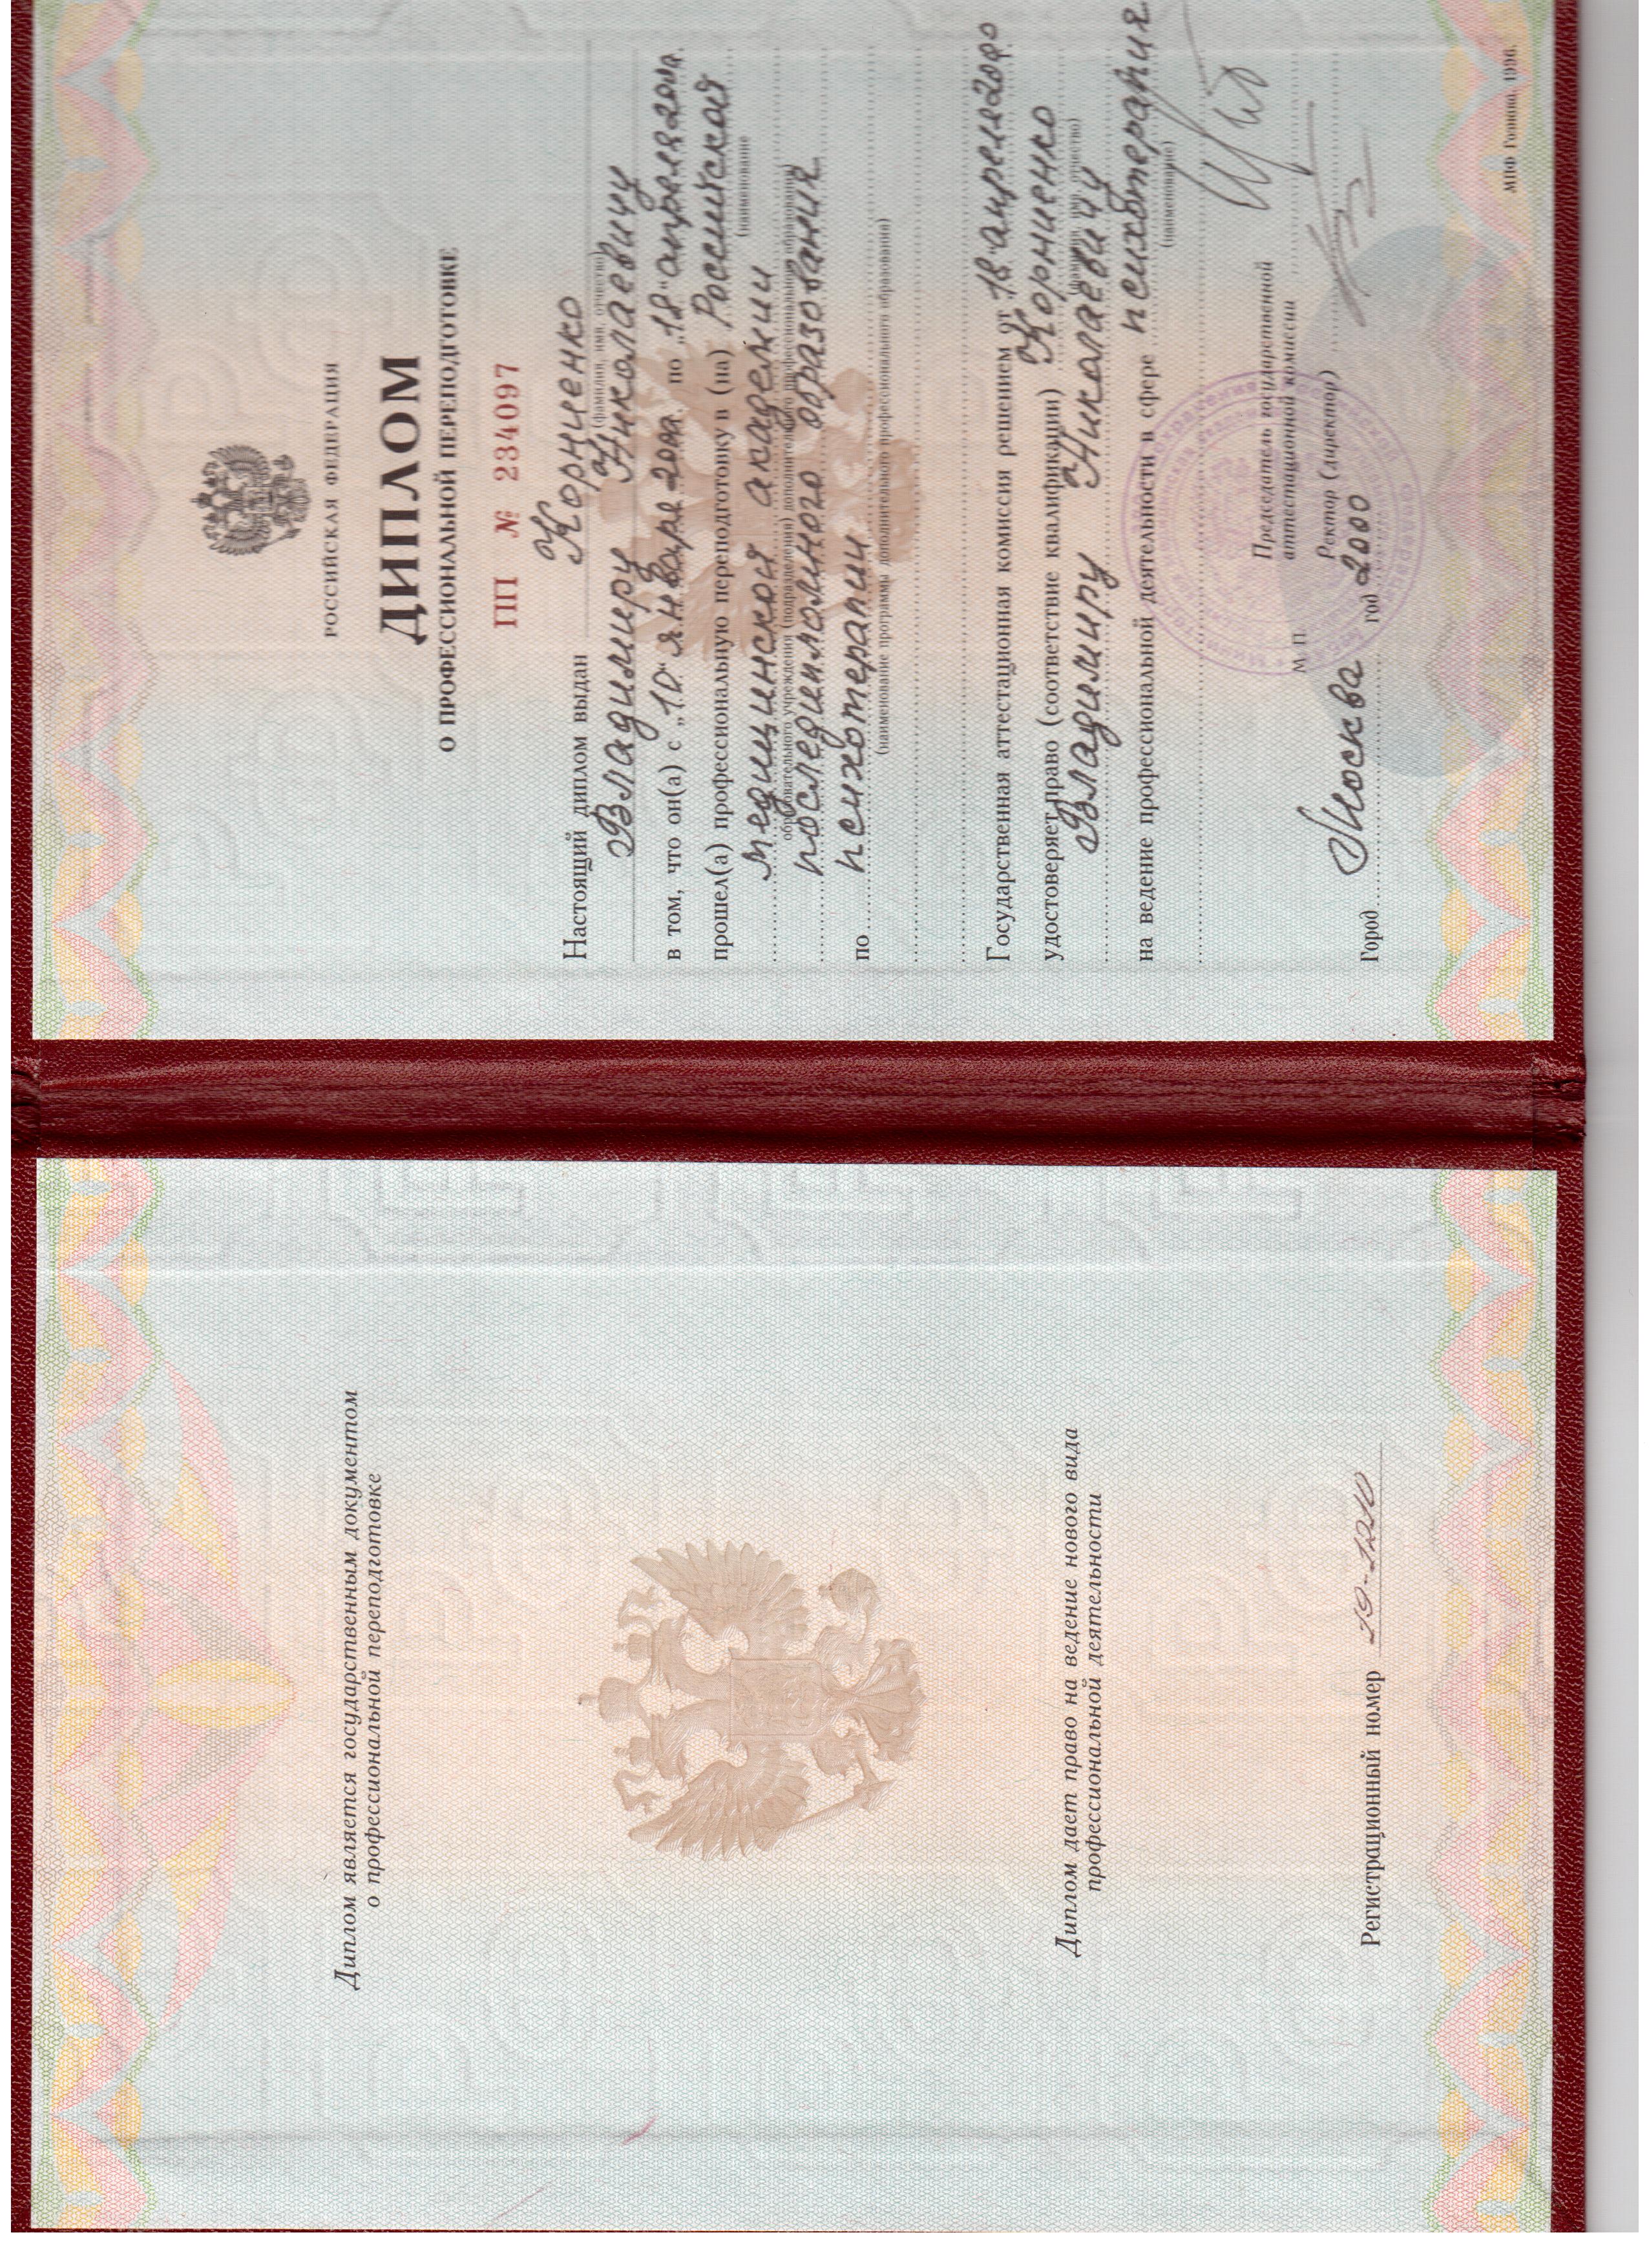 Диплом является государственным документом
о профессиональной переподготовке
Диплом дает право на ведение нового вида
профессиональной деятельности
Регистрационный номер 19-1210
РОССИЙСКАЯ ФЕДЕРАЦИЯ
ДИПЛОМ
О ПРОФЕССИОНАЛЬНОЙ ПЕРЕПОДГОТОВКЕ
ПП № 234097
Настоящий диплом выдан Корниенко
(фамилия, имя, отчество)
Владимиру Николаевичу
в том, что он(а) с „10“ января 2000. по „18“ апреля 2000.
прошел(а) профессиональную переподготовку в (на) Российской
(наименование
медицинской академии
образовательного учреждения (подразделения) дополнительного профессионального образования)
последипломного образования
по психотерапии
(наименование программы дополнительного профессионального образования)
Государственная аттестационная комиссия решением от 18 “апреля 2000
удостоверяет право (соответствие квалификации) Корниенко
(фамилия, имя, отчество)
Владимиру Николаевичу
на ведение профессиональной деятельности в сфере психотерапия
(наименование)
Председатель государственной
аттестационной комиссии
М. П.
Ректор (директор)
Город Москва год 2000
МПФ Гознака. 1996.